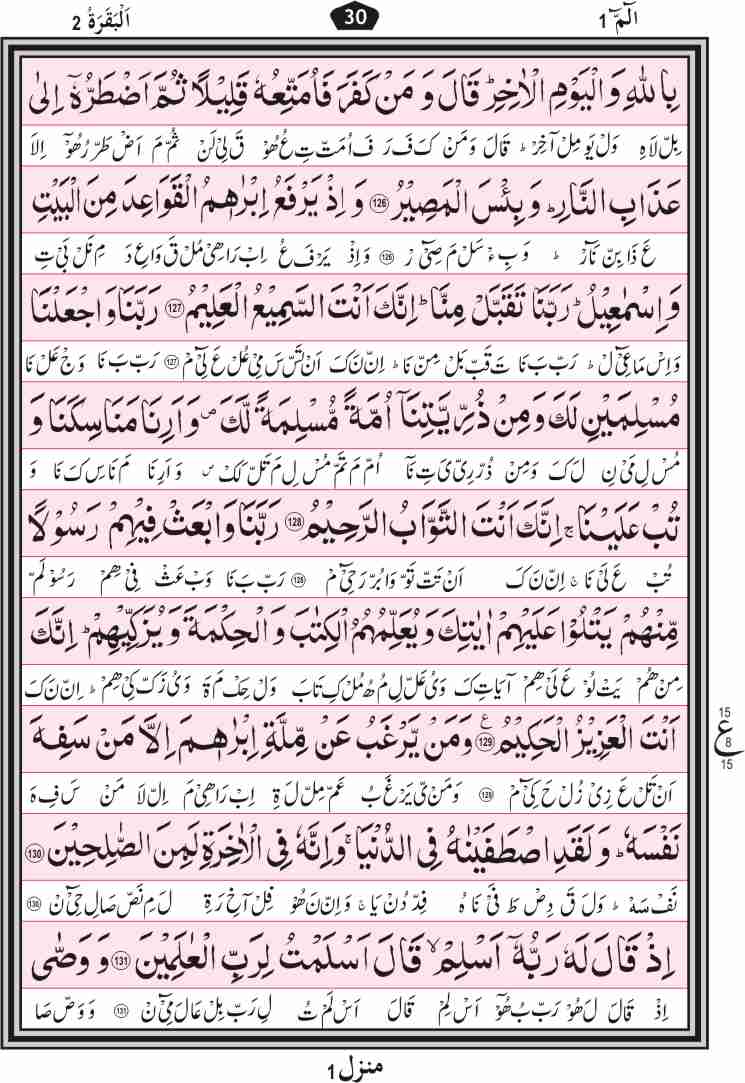 الٓمّٓ 1
30
اَلْبَقَرَةُ 2
بِاللّٰهِ وَالْيَوْمِ الْاٰخِرِ ؕ قَالَ وَ مَنْ كَفَرَ فَاُمَتِّعُهٗ قَلِيْلًا ثُمَّ اَضْطَرُّهٗۤ اِلٰى
بِلْ لَاهِ وَلْ يَوْ مِلْ آخِرْ ؕ قَالَ وَمَنْ كَ فَ رَ فَ اُمَتْ تِ عُ هُوْ قَ لِىْ لَنْ ثُمْ مَ اَضْ طَرْ رُ هُوْٓ اِلَا
عَذَابِ النَّارِ ؕ وَ بِئْسَ الْمَصِيْرُ 126 وَ اِذْ يَرْفَعُ اِبْرٰهٖمُ الْقَوَاعِدَ مِنَ الْبَيْتِ
عَ ذَا بِنْ نَآرْ ؕ وَ بِ ءْ سَلْ مَ صِىْٓ رْ 126 وَ اِذْ يَرْ فَ عُ اِبْ رَا هِىْ مُلْ قَ وَا عِ دَ مِ نَلْ بَىْ تِ
وَ اِسْمٰعِيْلُ ؕ رَبَّنَا تَقَبَّلْ مِنَّا ؕ اِنَّكَ اَنْتَ السَّمِيْعُ الْعَلِيْمُ 127 رَبَّنَا وَاجْعَلْنَا
وَ اِسْ مَا عِىْٓ لْ ؕ رَبْ بَ نَا تَ قَبْ بَلْ مِنْ نَا ؕ اِنْ نَ كَ اَنْ تَسْ سَ مِىْ عُلْ عَ لِىْٓ مْ 127 رَبْ بَ نَا وَ جْ عَلْ نَا
مُسْلِمَيْنِ لَكَ وَ مِنْ ذُرِّيَّتِنَاۤ اُمَّةً مُّسْلِمَةً لَّكَ ص وَ اَرِنَا مَنَاسِكَنَا وَ
مُسْ لِ مَىْ نِ لَ كَ وَ مِنْ ذُرْ رِىْ ىَ تِ نَآ اُمْ مَ تَمْ مُسْ لِ مَ تَلْ لَكْ ص وَ اَرِ نَا مَ نَا سِ كَ نَا وَ
تُبْ عَلَيْنَا ج اِنَّكَ اَنْتَ التَّوَّابُ الرَّحِيْمُ 128 رَبَّنَا وَابْعَثْ فِيْهِمْ رَسُوْلًا
تُبْ عَ لَىْ نَا ج اِنْ نَ كَ اَنْ تَتْ تَوْ وَا بُرْ رَ حِىْٓ مْ 128 رَبْ بَ نَا وَبْ عَثْ فِىْ هِمْ رَسُوْ لَمْ
مِّنْهُمْ يَتْلُوْا عَلَيْهِمْ اٰيٰتِكَ وَ يُعَلِّمُهُمُ الْكِتٰبَ وَ الْحِكْمَةَ وَ يُزَكِّيْهِمْ ؕ اِنَّكَ
مِنْ هُمْ يَتْ لُوْ عَ لَىْ هِمْ آيَاتِ كَ وَىُ عَلْ لِ مُ هُ مُلْ كِ تَابَ وَلْ حِكْ مَ ةَ وَىُ زَكْ كِىْ هِمْ ؕ اِنْ نَ كَ
اَنْتَ الْعَزِيْزُ الْحَكِيْمُ 129 ع وَ مَنْ يَّرْغَبُ عَنْ مِّلَّةِ اِبْرٰهٖمَ اِلَّا مَنْ سَفِهَ
15
ع
8
15
اَنْ تَلْ عَ زِىْ زُلْ حَ كِىْٓ مْ 129 وَ مَنْ ىْ يَرْ غَ بُ عَمْ مِلْ لَ ةِ اِبْ رَا هِىْ مَ اِلْ لَا مَنْ سَ فِ هَ
نَفْسَهٗ ؕ وَ لَقَدِ اصْطَفَيْنٰهُ فِى الدُّنْيَا ج وَ اِنَّهٗ فِى الْاٰخِرَةِ لَمِنَ الصّٰلِحِيْنَ 130
نَفْ سَهْ ؕ وَ لَ قَ دِصْ طَ فَىْ نَا هُ فِدْ دُنْ يَا ج وَ اِنْ نَ هُوْ فِلْ آخِ رَ ةِ لَ مِ نَصْ صَالِ حِىْٓ نْ 130
اِذْ قَالَ لَهٗ رَبُّهٗۤ اَسْلِمْ لا قَالَ اَسْلَمْتُ لِرَبِّ الْعٰلَمِيْنَ 131 وَ وَصّٰى
اِذْ قَالَ لَ هُوْ رَبْ بُ هُوْٓ اَسْ لِمْ قَالَ اَسْ لَمْ تُ لِ رَبْ بِلْ عَالَ مِىْٓ نْ 131 وَ وَصْ صَا
منزل 1